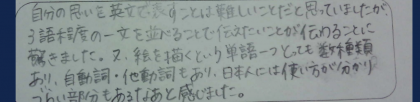 自分の思いを英文で表すことは難しいことだと思っていましたが
3語程度の一文を並べることで伝えたいことが伝わることに
驚きました。又、絵を描くという単語一つとっても数種類
あり、自動詞・他動詞もあり、日本人には使い方が分かり
づらい部分もあるなあと感じました。